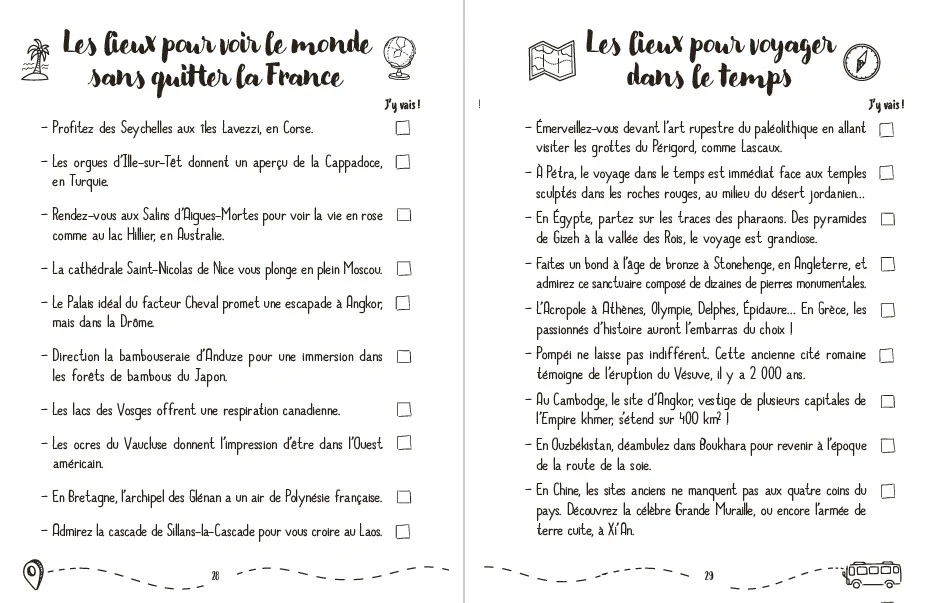 Les lieux pour voir le monde
sans quitter la France
J'y vais !
- Profitez des Seychelles aux îles Lavezzi, en Corse.
- Les orgues d'Ille-sur-Têt donnent un aperçu de la Cappadoce,
en Turquie.
- Rendez-vous aux Salins d'Aigues-Mortes pour voir la vie en rose
comme au lac Hillier, en Australie.
- La cathédrale Saint-Nicolas de Nice vous plonge en plein Moscou.
- Le Palais idéal du facteur Cheval promet une escapade à Angkor,
mais dans la Drôme.
- Direction la bambouseraie d'Anduze pour une immersion dans
les forêts de bambous du Japon.
- Les lacs des Vosges offrent une respiration canadienne.
- Les ocres du Vaucluse donnent l'impression d'être dans l'Ouest
américain.
- En Bretagne, l'archipel des Glénan a un air de Polynésie française.
- Admirez la cascade de Sillans-la-Cascade pour vous croire au Laos.
28
!
Les lieux pour voyager
dans le temps
J'y vais !
- Émerveillez-vous devant l'art rupestre du paléolithique en allant
visiter les grottes du Périgord, comme Lascaux.
- À Pétra, le voyage dans le temps est immédiat face aux temples
sculptés dans les roches rouges, au milieu du désert jordanien...
- En Égypte, partez sur les traces des pharaons. Des pyramides
de Gizeh à la vallée des Rois, le voyage est grandiose.
- Faites un bond à l'âge de bronze à Stonehenge, en Angleterre, et
admirez ce sanctuaire composé de dizaines de pierres monumentales.
- L'Acropole à Athènes, Olympie, Delphes, Épidaure... En Grèce, les
passionnés d'histoire auront l'embarras du choix !
- Pompéi ne laisse pas indifférent. Cette ancienne cité romaine
témoigne de l'éruption du Vésuve, il y a 2 000 ans.
- Au Cambodge, le site d'Angkor, vestige de plusieurs capitales de
l'Empire khmer, s'étend sur 400 km² !
- En Ouzbékistan, déambulez dans Boukhara pour revenir à l'époque
de la route de la soie.
- En Chine, les sites anciens ne manquent pas aux quatre coins du
pays. Découvrez la célèbre Grande Muraille, ou encore l'armée de
terre cuite, à Xi'An.
29